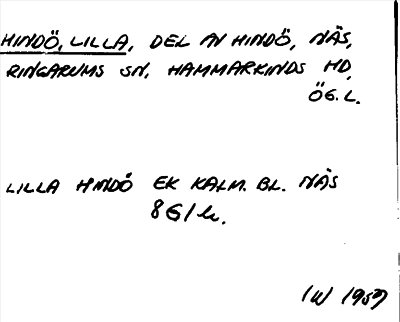 HINDÖ, LILLA, DEL AV HINDÖ, NÄS,
RINGARUMS SN, HAMMARKINDS HD,
ÖG. L.
LILLA HINDÖ EK KALM. BL. NÄS
8G1h.
IW 1957